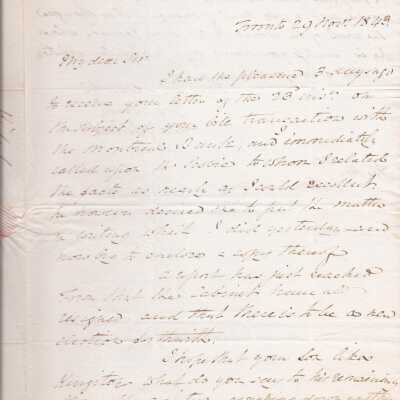 Toronto 29 Nov. 1843
My dear Sir
I had the pleasure 3 days ago
to receive your letter of the 23 inst. on
the subject of your transaction with
the Montreal Bank, and immediately
called upon the to whom I related
the facts as nearly as I could recollect
he however desired me to put the matter
in writing which I did yesterday and
now beg to enclose a copy thereof
a report has just reached
Town that the Cabinet have all
resigned and that there is to be a new
election forthwith.
I hope that your Son likes
Kingston what do you say to his remaining